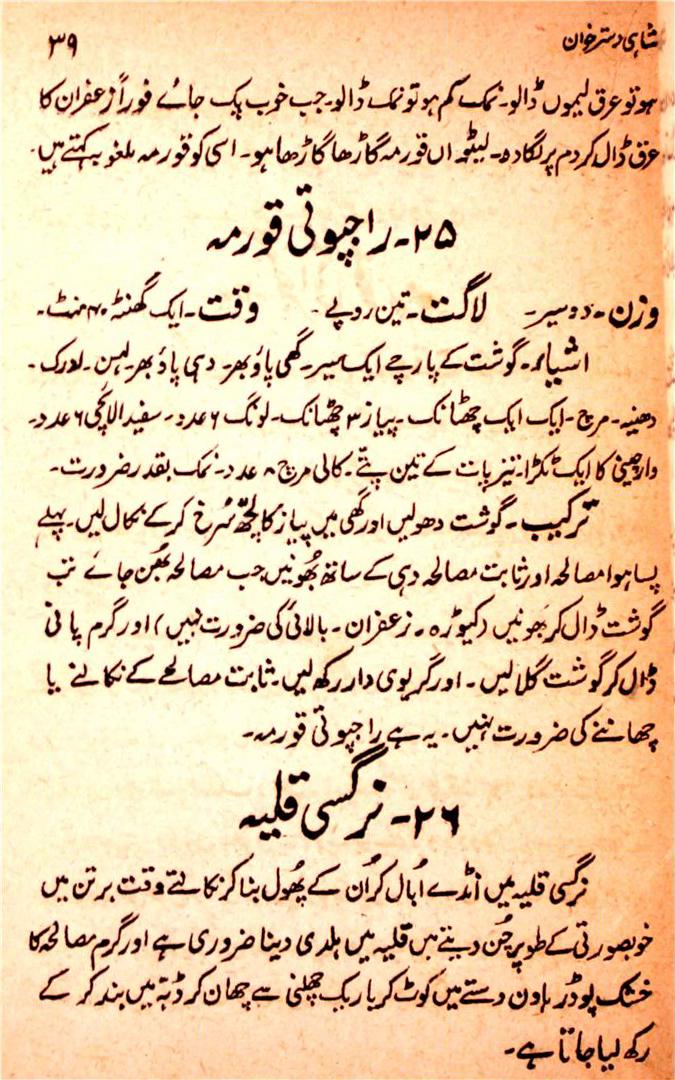 شاہی دسترخوان ۳۹
ہو تو عرق لیموں ڈالو۔ نمک کم ہو تو نمک ڈالو۔ جب خوب پک جائے فوراً زعفران کا
عرق ڈال کر دم پر لگا دہ۔ لیٹواں قورمہ گاڑھا گاڑھا ہو۔ اسی کو قورمہ بلغوبہ کہتے ہیں۔
۲۵۔ راجپوتی قورمہ
وزن۔ دو سیر۔ لاگت۔ تین روپے۔ وقت۔ ایک گھنٹہ ۲۰ منٹ۔
اشیاء۔ گوشت کے پارچے ایک سیر۔ گھی پاؤ بھر۔ دہی پاؤ بھر۔ لہسن۔ ادرک۔
دھنیہ۔ مرچ۔ ایک ایک چھٹانک۔ پیاز ۳ چھٹانک۔ لونگ ۶ عدد۔ سفید الائچی ۶ عدد۔
دارچینی کا ایک ٹکڑا۔ تیزپات کے تین پتے۔ کالی مرچ ۸ عدد۔ نمک بقدر ضرورت۔
ترکیب۔ گوشت دھولیں اور گھی میں پیاز کا لچھّہ سُرخ کر کے نکال لیں۔ پہلے
پسا ہوا مصالحہ اور ثابت مصالحہ دہی کے ساتھ بھُونیں جب مصالحہ بھُن جائے تب
گوشت ڈال کر بھونیں (کیوڑہ۔ زعفران۔ بالائی کی ضرورت نہیں) اور گرم پانی
ڈال کر گوشت گلالیں۔ اور گریوی دار رکھ لیں۔ ثابت مصالحے کے نکالنے یا
چھاننے کی ضرورت نہیں۔ یہ ہے راجپوتی قورمہ۔
۲۶۔ نرگسی قلیہ
نرگسی قلیہ میں انڈے اُبال کر اُن کے پھُول بنا کر نکالتے وقت برتن میں
خوبصورتی کے طور پر چُن دیتے ہیں قلیہ میں ہلدی دینا ضروری ہے اور گرم مصالحہ کا
خشک پوڈر ہاون دستے میں کوٹ کر باریک چھلنی سے چھان کر ڈبّہ میں بند کر کے
رکھ لیا جاتا ہے۔